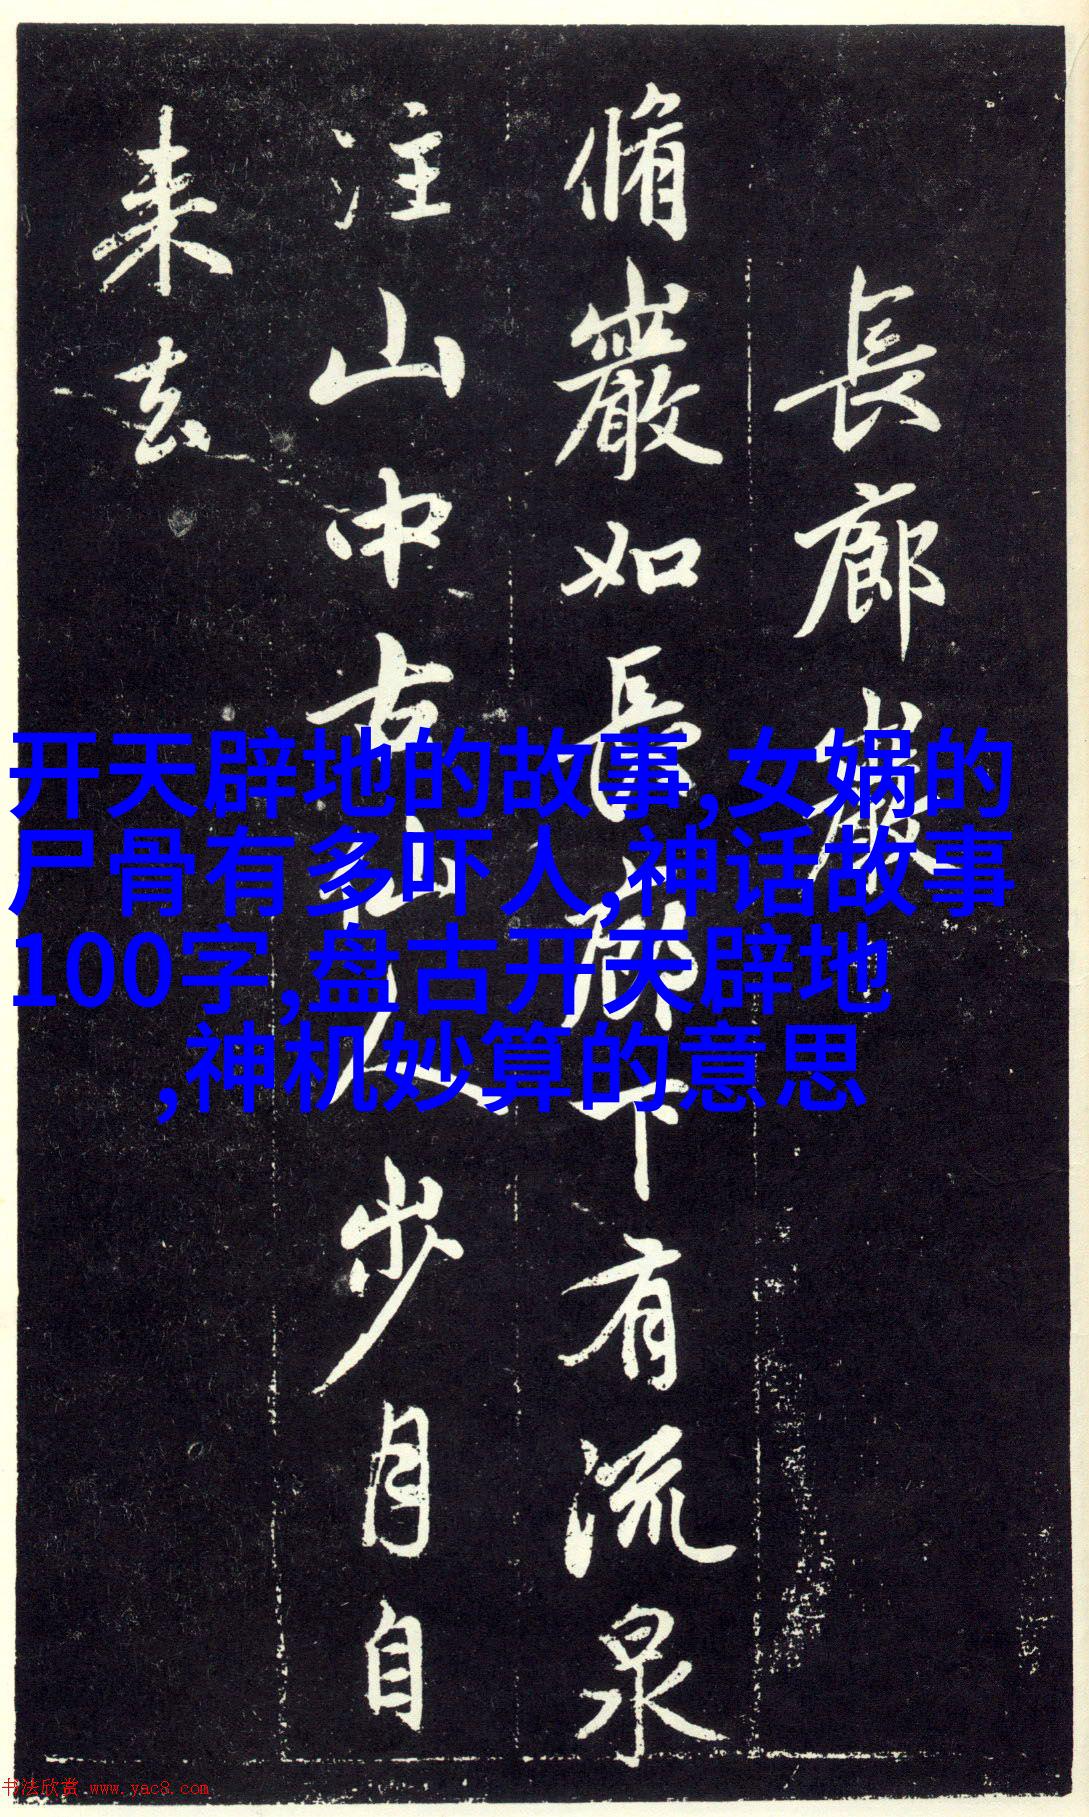 長廊巖
脩巖如長廊下有流泉
注山中古仙人步月自
来去
开天辟地的故事,女娲的
尸骨有多吓人,神话故事
100字,盘古开天辟地
,神机妙算的意思
书法欣赏 www.yac8.com